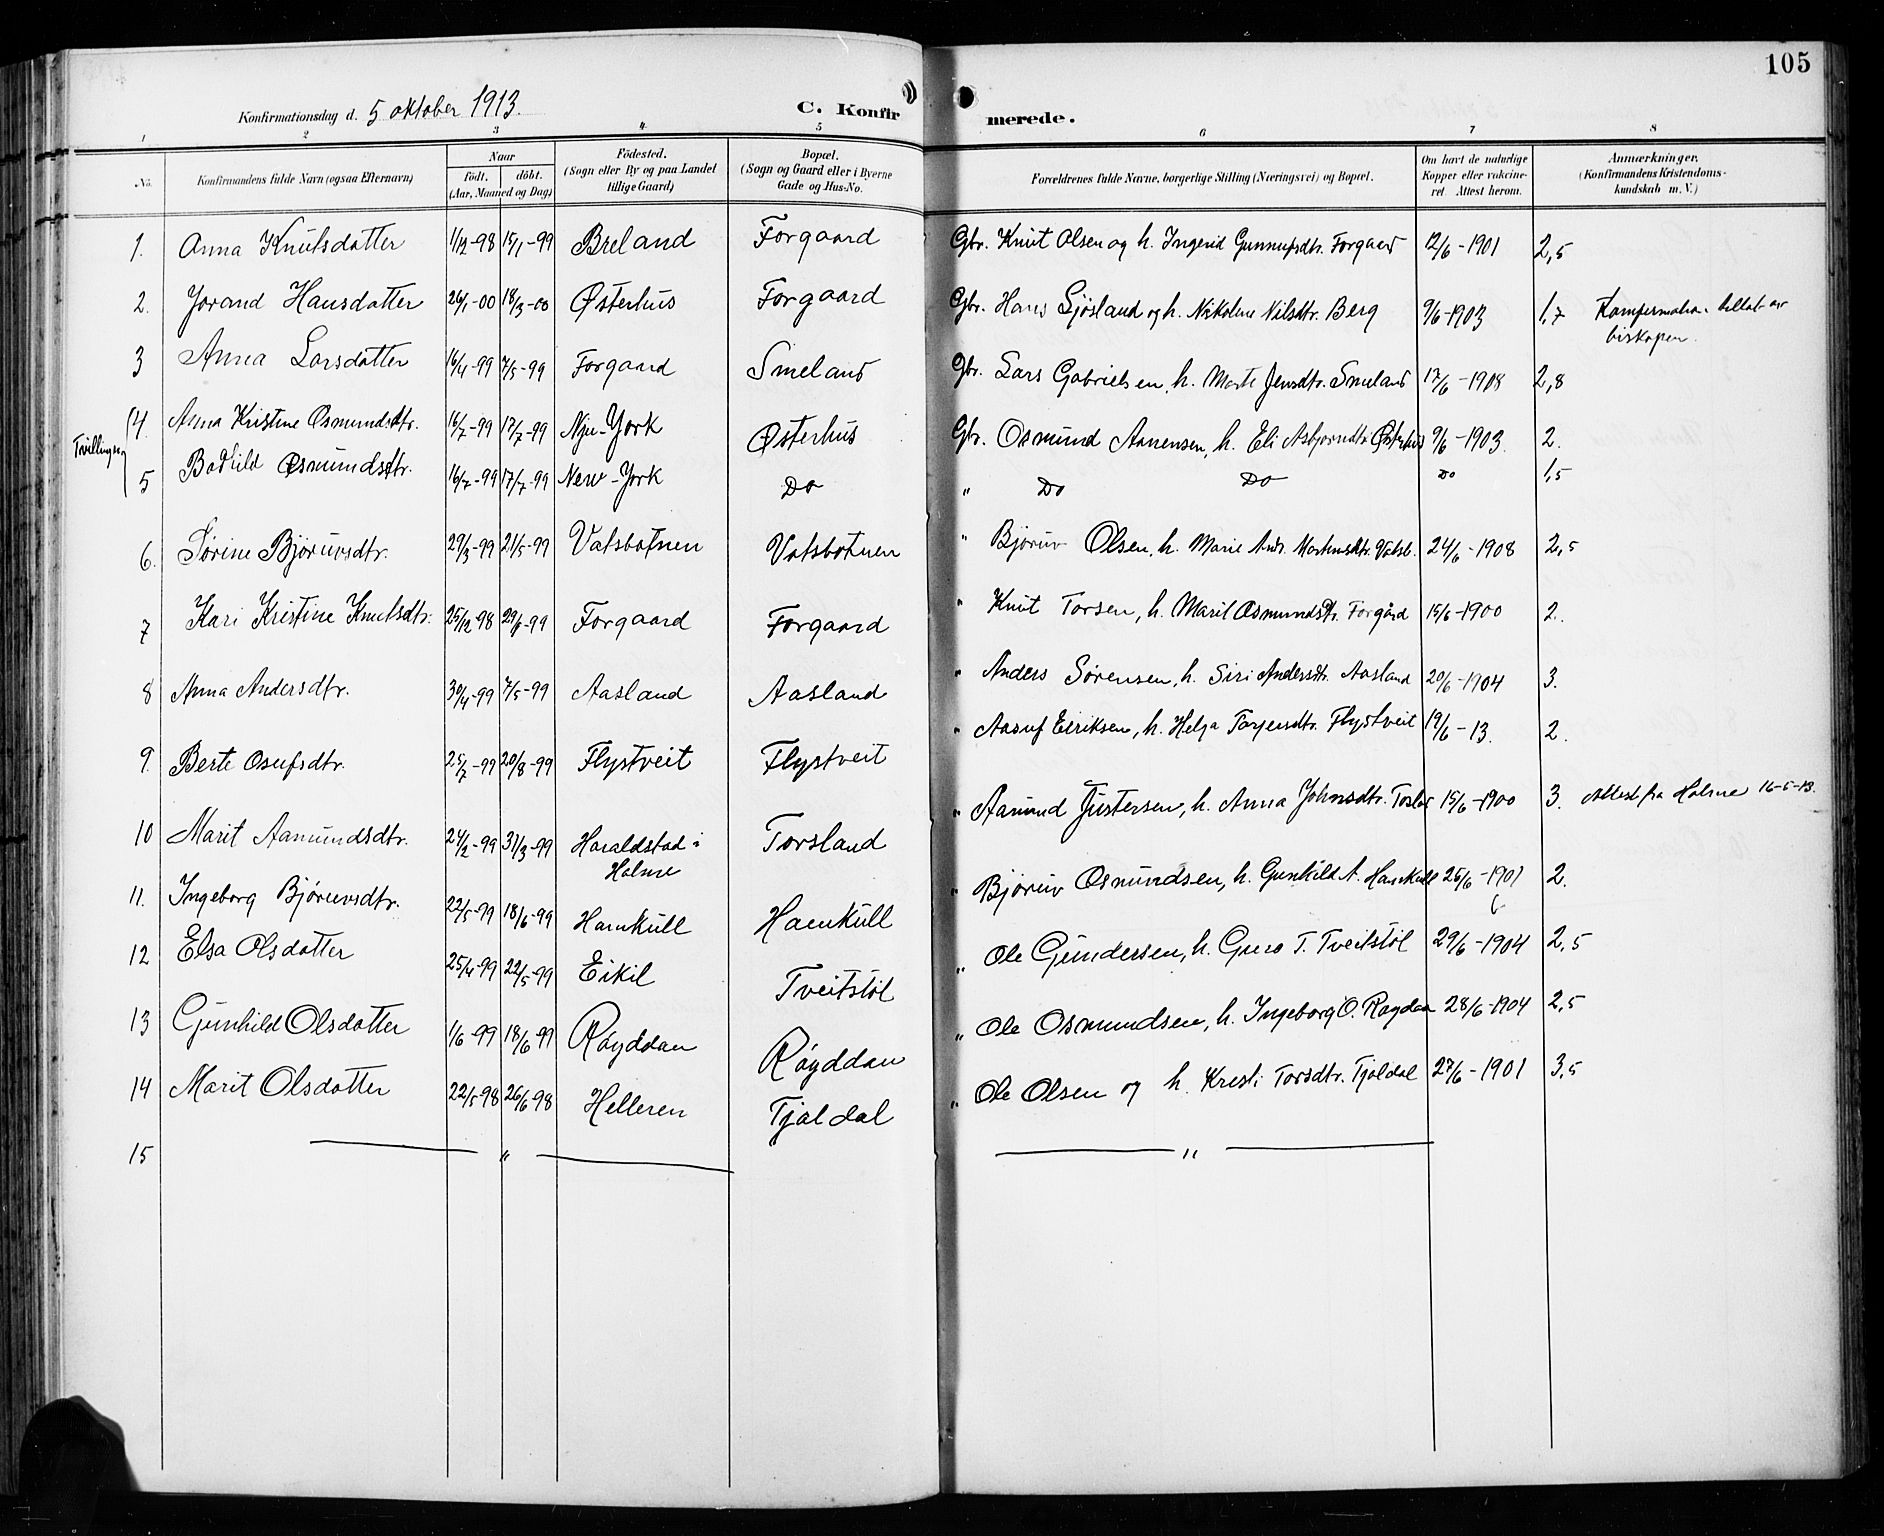 105
Konfirmationsdag d. 5 oktober 1913. C. Konfirmerede.
1 2 3 4 5 6 7 8
No. Konfirmandens fulde Navn (ogsaa Efternavn) Naar født. døbt. (Aar, Maaned og Dag) Fødested. (Sogn eller By og paa Landet tillige Gaard) Bopæl. (Sogn og Gaard eller i Byerne Gade og Hus-No. Forældrenes fulde Navne, borgerlige Stilling (Næringsvei) og Bopæl. Om havt de naturlige Kopper eller vakcineret Attest herom. Anmærkninger. (Konfirmandens Kristendomskundskab m. V.)
1. Anna Knutsdatter 1/12-98 15/1-99 Breland Forgaard Gbr. Knut Olsen og h. Ingerid Gunnufsdtr. Forgaard 12/6-1901 2,5
2. Jorand Hansdatter 26/1-00 18/3-00 Østerhus Forgaard Gbr. Hans Sjøsland og h. Nikoline Nilsdtr. Berg 9/6-1903 1,7 tillat av biskopen.
3 Anna Larsdatter 16/4-99 7/5-99 Forgaard Smeland Gbr. Lars Gabrielsen, h. Marte Jensdtr. Smeland 17/6-1908 2,8
Tvillinger
4. Anna Kristine Osmundsdtr. 16/7-99 17/7-99 Nju-York Østerhus Gbr. Osmund Aanensen, h. Eli Asbjørndtr. Østerhus 9/6-1903. 2.
5 Bodhild Osmundsdtr. 16/7-99 17/7-99 New-York Do " Do Do Do 1,5
6. Sørine Bjøruvsdtr. 29/3-99 21/5-99 Vatsbotnen Vatsbotnen " Bjøruv Olsen, h. Marie And. Mortensdtr. Vatsb. 24/6-1908 2,5
7 Kari Kristine Knutsdtr. 25/12 98 29/1-99 Forgaard Forgaard " Knut Torsen, h. Marit Osmundsdtr. Forgård 15/6-1900 2.
8 Anna Andersdtr. 30/4-99 7/5-99 Aasland Aasland " Anders Sørensen, h. Siri Andersdtr. Aasland 20/6-1904 3.
9. Berte Osufsdtr. 25/7-99 20/8-99 Flystveit Flystveit " Aasuf Eiriksen, h. Helga Torjensdtr. Flystveit 19/6-13. 2.
10 Marit Aamundsdtr. 24/2-99 31/3-99 Haraldstad i Holme Torsland " Aamund Gustersen, h. Anna Johnsdtr. Tosla 15/6-1900 3. Attest fra Holme 16-5-13.
11. Ingeborg Bjøruvsdtr. 22/5-99 18/6-99 Hamkull Hamkull " Bjøruv Osmundsen, h. Gunhild A. Hamkull 25/6-1901 2.
12 Elsa Olsdatter 25/4-99 22/5-99 Eikil Tveitstøl " Ole Gundersen, h. Guro T. Tveitstøl 29/6-1904 2,5
13 Gunhild Olsdatter 1/6-99 18/6-99 Røyddan Røyddan " Ole Osmundsen, h. Ingeborg O. Røydda 28/6-1904 2,5
14 Marit Olsdatter 22/5-98 26/6-98 Helleren Tjaldal " Ole Olsen og h. Kresti Torsdtr. Tjaldal 27/6-1901 3,5
15 " "